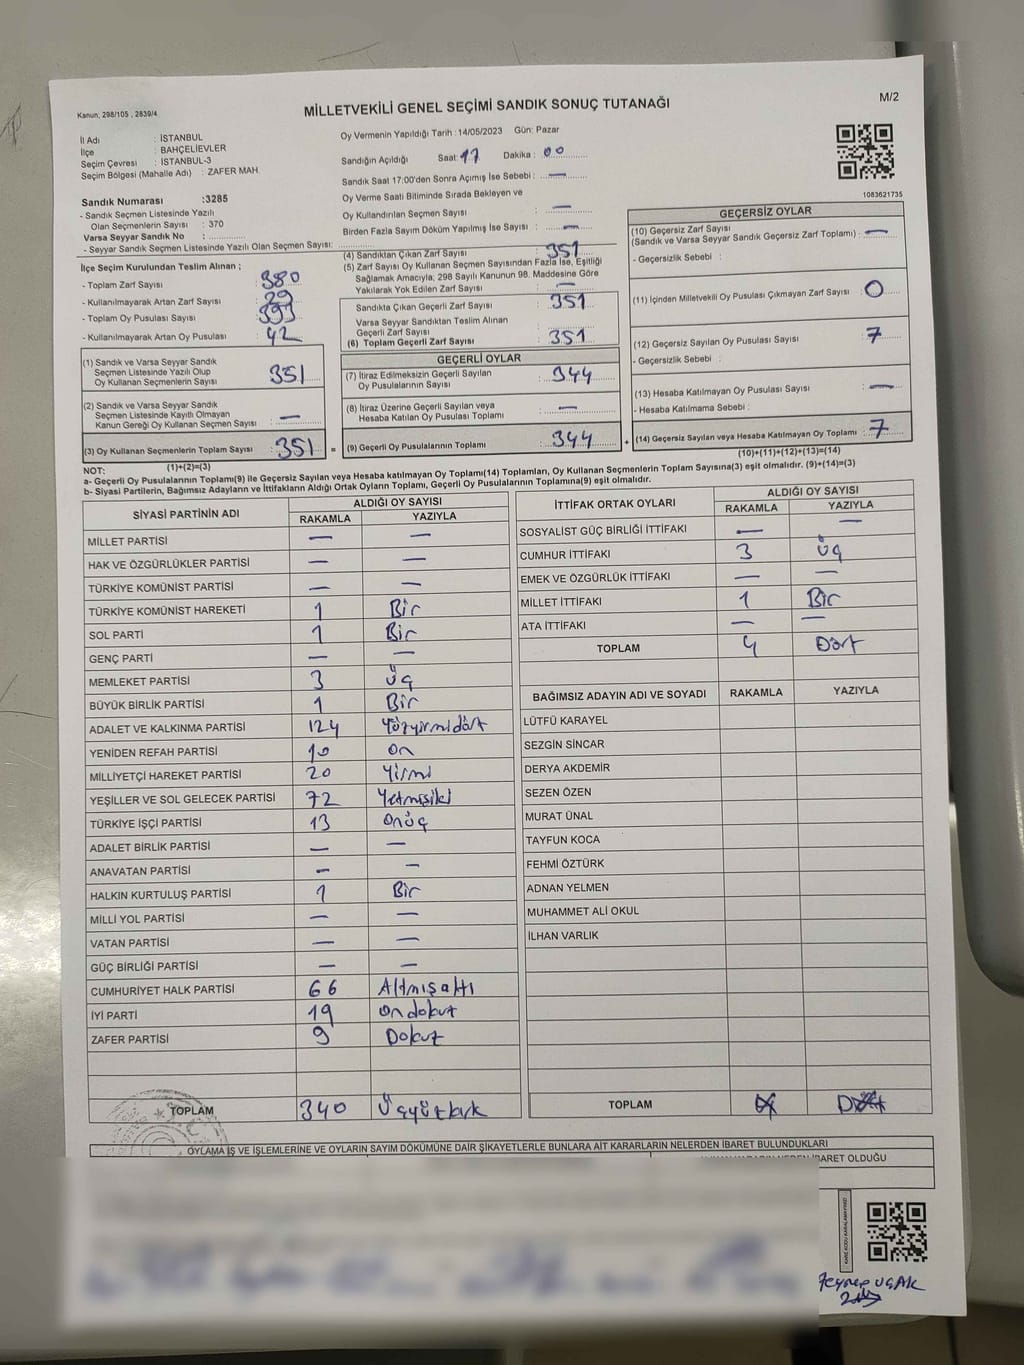 Kanun, 298/105 , 2839/4
MİLLETVEKİLİ GENEL SEÇİMİ SANDIK SONUÇ TUTANAĞI
M/2
İl Adı : İSTANBUL
İlçe : BAHÇELİEVLER
Seçim Çevresi : İSTANBUL-3
Seçim Bölgesi (Mahalle Adı) : ZAFER MAH.
Oy Vermenin Yapıldığı Tarih : 14/05/2023 Gün: Pazar
Sandığın Açıldığı Saat: 17 Dakika : 00
Sandık Saat 17:00'den Sonra Açımış İse Sebebi : —
Oy Verme Saati Bitiminde Sırada Bekleyen ve
Oy Kullandırılan Seçmen Sayısı : —
Birden Fazla Sayım Döküm Yapılmış İse Sayısı : —
1083621735
Sandık Numarası :3285
- Sandık Seçmen Listesinde Yazılı
Olan Seçmenlerin Sayısı : 370
Varsa Seyyar Sandık No :
- Seyyar Sandık Seçmen Listesinde Yazılı Olan Seçmen Sayısı:
İlçe Seçim Kurulundan Teslim Alınan ;
- Toplam Zarf Sayısı : 380
- Kullanılmayarak Artan Zarf Sayısı : 29
- Toplam Oy Pusulası Sayısı : 393
- Kullanılmayarak Artan Oy Pusulası : 42
(1) Sandık ve Varsa Seyyar Sandık
Seçmen Listesinde Yazılı Olup
Oy Kullanan Seçmenlerin Sayısı : 351
(2) Sandık ve Varsa Seyyar Sandık
Seçmen Listesinde Kayıtlı Olmayan
Kanun Gereği Oy Kullanan Seçmen Sayısı : —
(3) Oy Kullanan Seçmenlerin Toplam Sayısı : 351
(1)+(2)=(3)
(4) Sandıktan Çıkan Zarf Sayısı : 351
(5) Zarf Sayısı Oy Kullanan Seçmen Sayısından Fazla İse, Eşitliği
Sağlamak Amacıyla, 298 Sayılı Kanunun 98. Maddesine Göre
Yakılarak Yok Edilen Zarf Sayısı : —
Sandıkta Çıkan Geçerli Zarf Sayısı : 351
Varsa Seyyar Sandıktan Teslim Alınan
Geçerli Zarf Sayısı :
(6) Toplam Geçerli Zarf Sayısı : 351
GEÇERLİ OYLAR
(7) İtiraz Edilmeksizin Geçerli Sayılan
Oy Pusulalarının Sayısı : 344
(8) İtiraz Üzerine Geçerli Sayılan veya
Hesaba Katılan Oy Pusulası Toplamı : —
= (9) Geçerli Oy Pusulalarının Toplamı : 344
GEÇERSİZ OYLAR
(10) Geçersiz Zarf Sayısı
(Sandık ve Varsa Seyyar Sandık Geçersiz Zarf Toplamı) : —
- Geçersizlik Sebebi :
(11) İçinden Milletvekili Oy Pusulası Çıkmayan Zarf Sayısı : 0
(12) Geçersiz Sayılan Oy Pusulası Sayısı : 7
- Geçersizlik Sebebi :
(13) Hesaba Katılmayan Oy Pusulası Sayısı : —
- Hesaba Katılmama Sebebi :
+ (14) Geçersiz Sayılan veya Hesaba Katılmayan Oy Toplamı : 7
(10)+(11)+(12)+(13)=(14)
NOT:
a- Geçerli Oy Pusulalarının Toplamı(9) ile Geçersiz Sayılan veya Hesaba katılmayan Oy Toplamı(14) Toplamları, Oy Kullanan Seçmenlerin Toplam Sayısına(3) eşit olmalıdır. (9)+(14)=(3)
b- Siyasi Partilerin, Bağımsız Adayların ve İttifakların Aldığı Ortak Oyların Toplamı, Geçerli Oy Pusulalarının Toplamına(9) eşit olmalıdır.
SİYASİ PARTİNİN ADI ALDIĞI OY SAYISI
RAKAMLA YAZIYLA
MİLLET PARTİSİ — —
HAK VE ÖZGÜRLÜKLER PARTİSİ — —
TÜRKİYE KOMÜNİST PARTİSİ — —
TÜRKİYE KOMÜNİST HAREKETİ 1 Bir
SOL PARTİ 1 Bir
GENÇ PARTİ — —
MEMLEKET PARTİSİ 3 Üç
BÜYÜK BİRLİK PARTİSİ 1 Bir
ADALET VE KALKINMA PARTİSİ 124 Yüzyirmidört
YENİDEN REFAH PARTİSİ 10 On
MİLLİYETÇİ HAREKET PARTİSİ 20 Yirmi
YEŞİLLER VE SOL GELECEK PARTİSİ 72 Yetmişiki
TÜRKİYE İŞÇİ PARTİSİ 13 Onüç
ADALET BİRLİK PARTİSİ — —
ANAVATAN PARTİSİ — —
HALKIN KURTULUŞ PARTİSİ 1 Bir
MİLLİ YOL PARTİSİ — —
VATAN PARTİSİ — —
GÜÇ BİRLİĞİ PARTİSİ — —
CUMHURİYET HALK PARTİSİ 66 Altmışaltı
İYİ PARTİ 19 Ondokuz
ZAFER PARTİSİ 9 Dokuz
TOPLAM 340 Üçyüzkırk
İTTİFAK ORTAK OYLARI ALDIĞI OY SAYISI
RAKAMLA YAZIYLA
SOSYALİST GÜÇ BİRLİĞİ İTTİFAKI — —
CUMHUR İTTİFAKI 3 Üç
EMEK VE ÖZGÜRLÜK İTTİFAKI — —
MİLLET İTTİFAKI 1 Bir
ATA İTTİFAKI — —
TOPLAM 4 Dört
BAĞIMSIZ ADAYIN ADI VE SOYADI RAKAMLA YAZIYLA
LÜTFÜ KARAYEL
SEZGİN SİNCAR
DERYA AKDEMİR
SEZEN ÖZEN
MURAT ÜNAL
TAYFUN KOCA
FEHMİ ÖZTÜRK
ADNAN YELMEN
MUHAMMET ALİ OKUL
İLHAN VARLIK
TOPLAM
OYLAMA İŞ VE İŞLEMLERİNE VE OYLARIN SAYIM DÖKÜMÜNE DAİR ŞİKAYETLERLE BUNLARA AİT KARARLARIN NELERDEN İBARET BULUNDUKLARI
İBARET OLDUĞU
Zeynep UÇAK